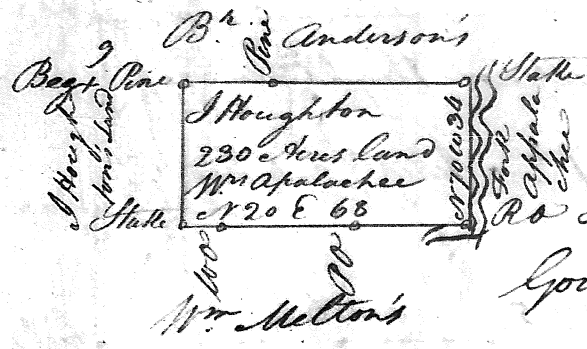 Bh. Anderson's
Pine
Beg g Pine
Stake
J Hough
ton's land
J Houghton
230 Acres land
Wrs Apalachee
N 20 E 68
N 70 W 34
Fork
Appala
chee
Stake
R O
W O
P O
Wm Melton's